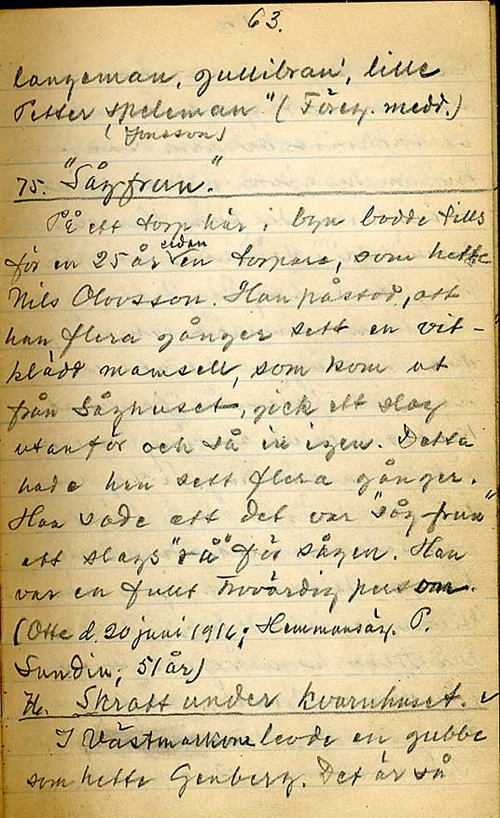 63.
langeman, gullibran', lille
Petter speleman" (Föreg. medd.)
(Jonsson)
75. "Sågfrun."
På ett torp här i byn bodde tills
för en 25 år sidan en torpare, som hette
Nils Olovsson. Han påstod, att
han flera gånger sett en vit-
klädd mamsell, som kom ut
från såghuset, gick ett slag
utanför och så in igen. Detta
hade han sett flera gånger.
Han sade att det var "sågfrun"
ett slags "rå" för sågen. Han
var en fullt trovärdig person.
(Otte d. 20 juni 1916; Hemmansäg. P.
Sundin, 51 år)
76. Skratt under kvarnhuset.
I Västmarkom levde en gubbe
som hette Genberg. Det är så